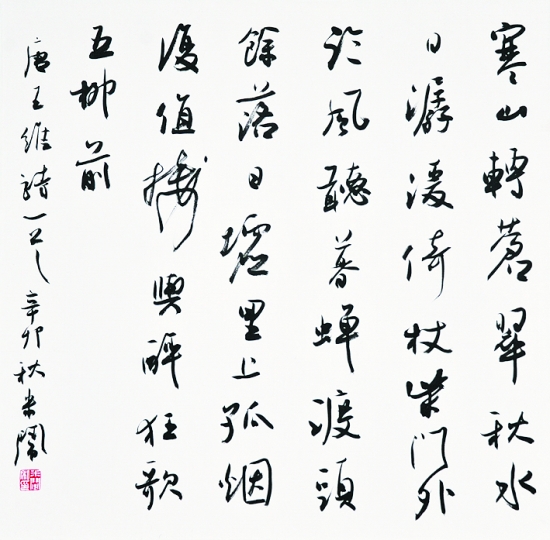 寒山轉蒼翠秋水
日潺湲倚杖柴門外
臨風聽暮蟬渡頭
餘落日墟里上孤烟
復值接輿醉狂歌
五柳前
唐王維詩一首辛卯秋米鬧